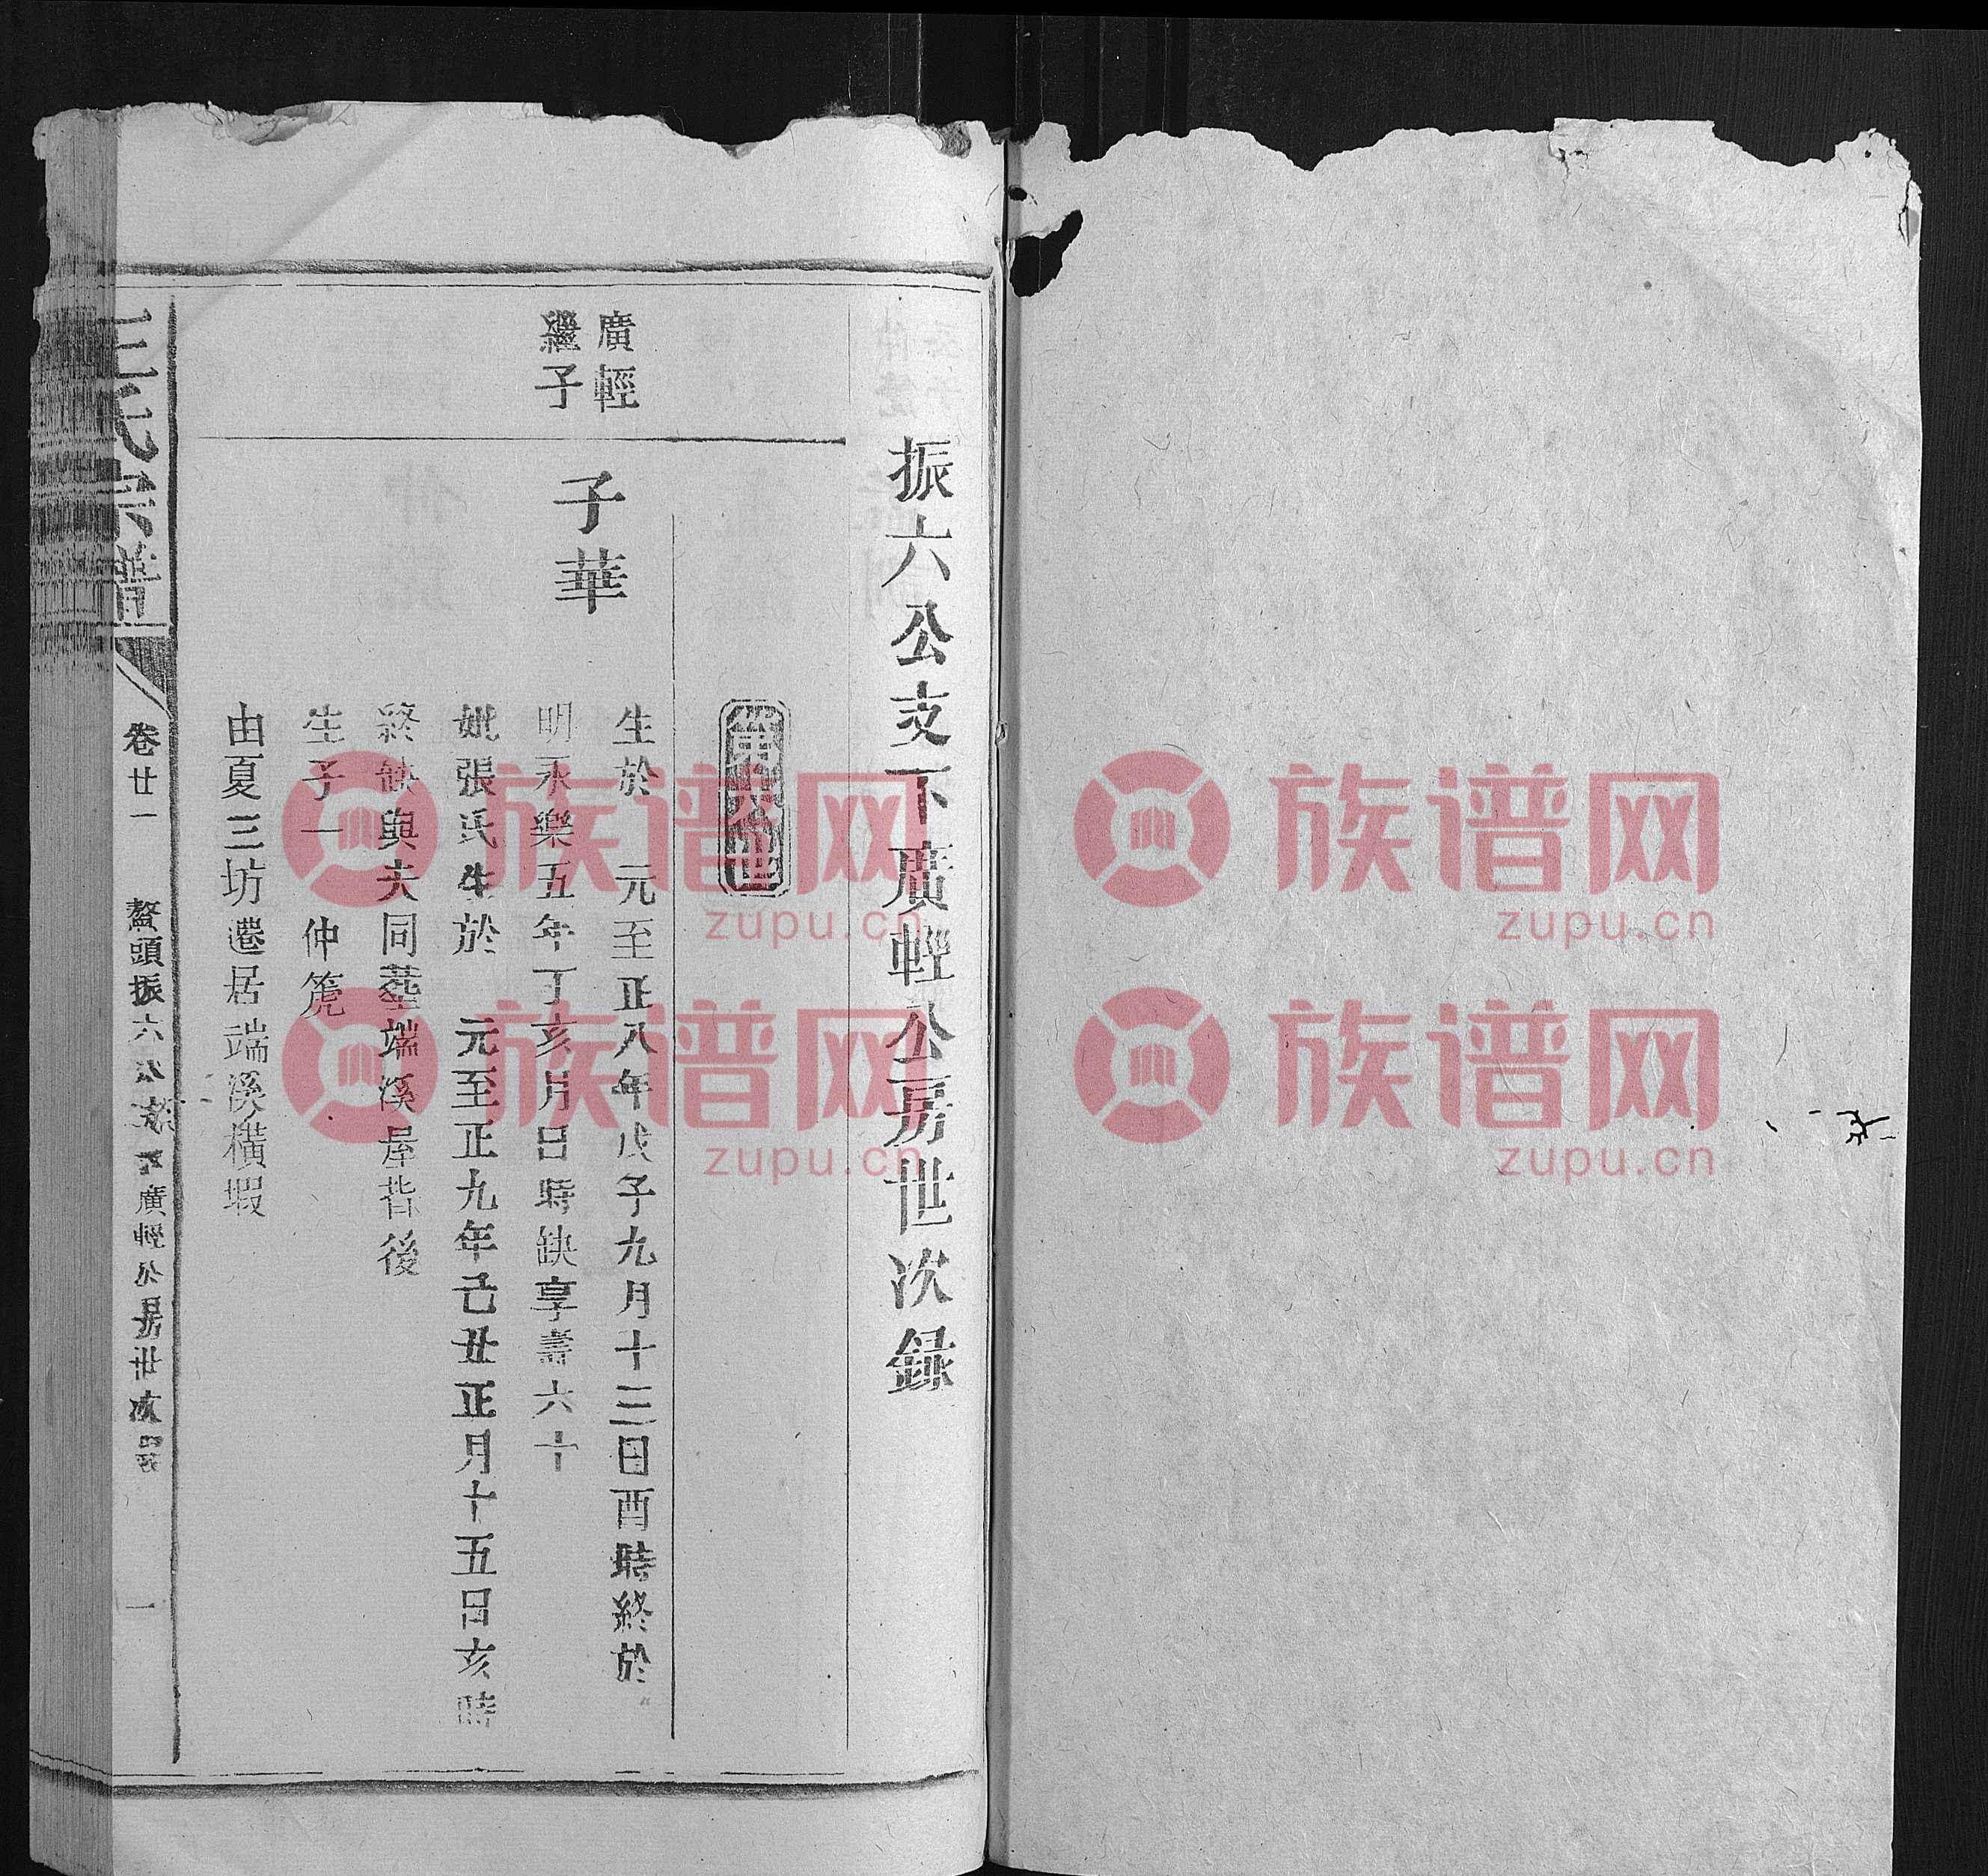 振六公支下廣輕公房世次錄
廣輕
繼子
子華
生於 元至正八年戊子九月十三日酉時終於
明永樂五年丁亥月日時缺享壽六十
妣張氏生於 元至正九年己丑正月十五日亥時
終缺與夫同塟端溪屋背後
生子一 仲箎
由夏三坊遷居端溪橫塅
王氏宗譜
卷廿一
鰲頭振六公支下廣輕公房世次錄
一
族谱网
zupu.cn
族谱网
zupu.cn
族谱网
zupu.cn
族谱网
zupu.cn